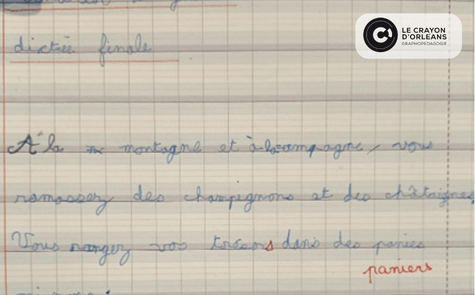 LE CRAYON
D'ORLÉANS
GRAPHOPEDAGOGIE
dictée finale
A la montagne et à la campagne, vous
ramassez des champignons et des châtaignes,
Vous rangez vos trésors dans des panies
paniers